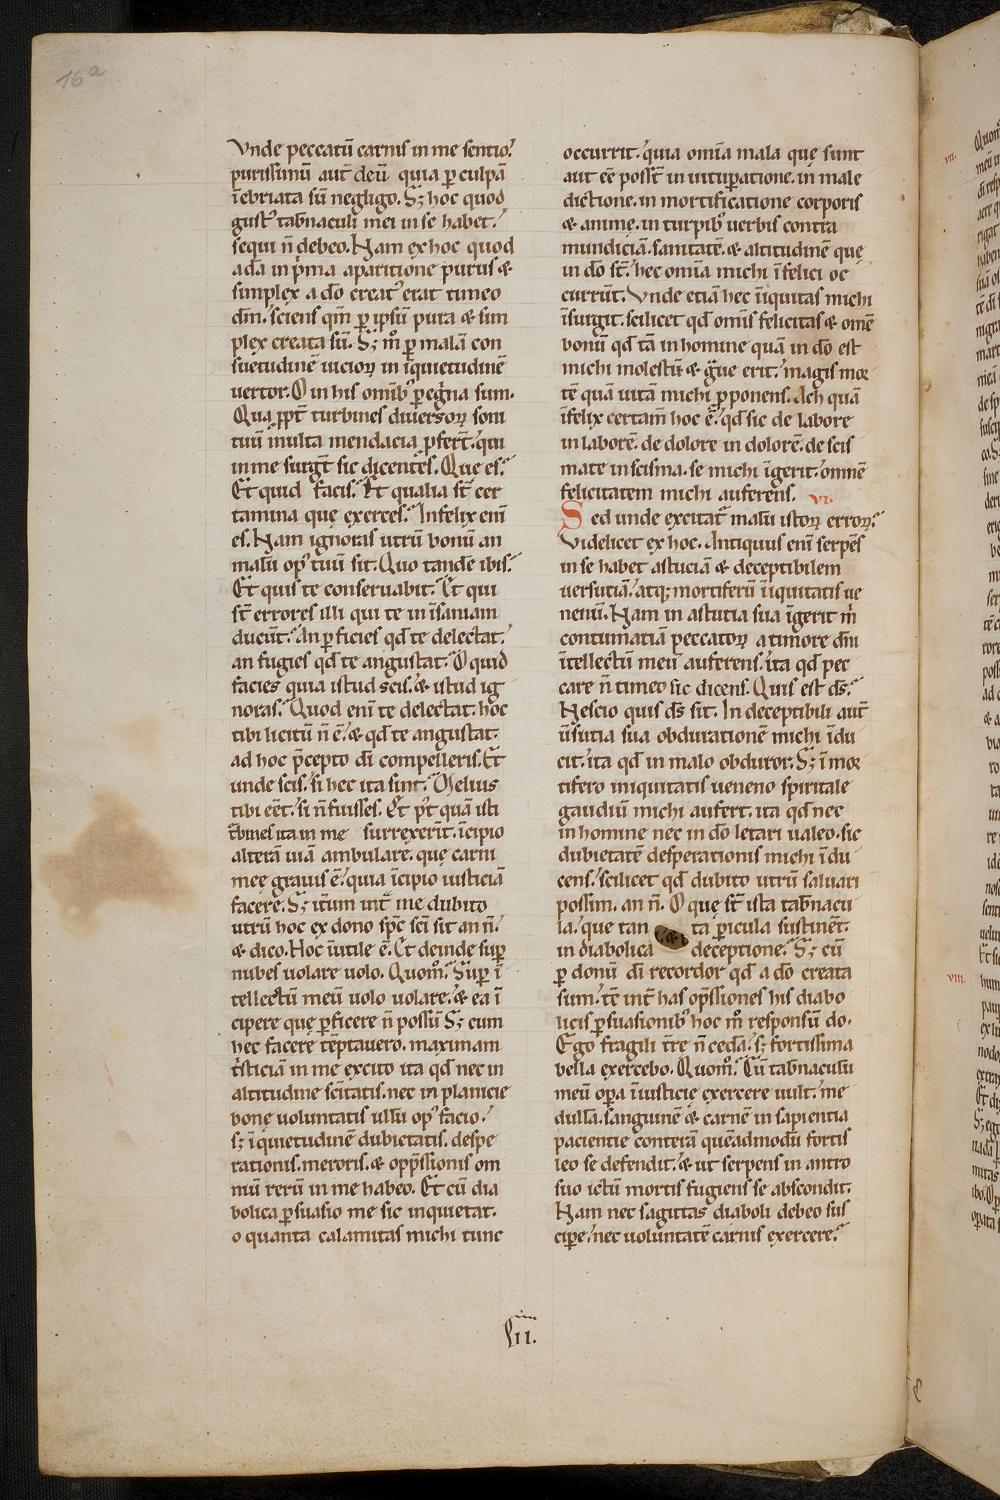 16a
Vnde peccatū carnis in me sentio.
purissimū aut̄ deū quia p culpā
īebriata sū negligo. Sꝫ hoc quod
gust᷒ tab̄naculi mei in se habet.
sequi n̄ debeo. Nam ex hoc quod
adā in p̄ma aparitione purus &
simplex a dō creat᷒ erat timeo
dm̄. sciens qm̄ p ipsū pura & sim
plex creata sū. Sꝫ m̊ p malā con
suetudinē uicioꝝ in īquietudinē
uertor. O in his omib᷒ peḡna sum.
Qua ꝓpt̄ turbines diuersoꝝ soni
tuū multa mendacia ꝓfert̄. qui
in me surgt̄ sic dicentes. Que es.
Et quid facis. Et qualia st̄ cer
tamina que exerces. Infelix enī
es. Nam ignoras utrū bonū an
malū op᷒ tuū sit. Quo tandē ibis.
Et quis te conseruabit. Et qui
st̄ errores illi qui te in īsaniam
ducūt. An pficies qd̄ te delectat.
an fugies qd̄ te angustat. O quid
facies quia istud scis. & istud ig
noras. Quod enī te delectat. hoc
tibi licitū n̄ ē. & qd̄ te angustat.
ad hoc p̄cepto dī compelleris. Et
unde scis. si hec ita sint. Melius
tibi eēt. si n̄ fuisses. Et p᷒t quā isti
t̄bines ita in me surrexerīt. īcipio
alterā uiā ambulare. que carni
mee grauis ē. quia īcipio iusticiā
facere. Sꝫ it̄um int̄ me dubito
utrū hoc ex dono spc̄ sc̄i sit an n̄.
& dico. Hoc īutile ē. Et deinde sup
nubes uolare uolo. Quom̊. Sup ī
tellectū meū uolo uolare. & ea ī
cipere que pficere n̄ possū Sꝫ cum
hec facere tēptauero. maximam
t̄sticiā in me excito ita qd̄ nec in
altitudine sc̄itatis. nec in planicie
bone uoluntatis ullū op᷒ facio.
sꝫ īquietudinē dubietatis. despe
rationis. meroris. & opp̄ssionis om
niū rerū in me habeo. Et cū dia
bolica psuasio me sic inquietat.
o quanta calamitas michi tunc
occurrit. quia omīa mala que sunt
aut eē posst̄ in uitupatione. in male
dictione. in mortificatione corporis
& anime. in turpib᷒ uerbis contra
mundiciā. sanitatē. & altitudinē que
in dō st̄. hec omīa michi īfelici oc
currūt. Vnde etiā hec īiquitas michi
īsurgit. scilicet qd̄ omīs felicitas & omē
bonū qd̄ tā in homine quā in dō est
michi molestū & g̃ue erit. magis moꝛ
tē quā uitā michi pponens. Ach quā
īfelix certam̄ hoc ē. qd̄ sic de labore
in laborē. de dolore in dolorē. de scis
mate in scisma. se michi īgerit. omnē
felicitatem michi auferens. VI.
Sed unde excitat᷒ malū istoꝝ erroꝝ.
Videlicet ex hoc. Antiquus enī serpēs
in se habet astuciā & deceptibilem
uersutiā. atqꝫ mortiferū īiquitatis ue
nenū. Nam in astutia sua īgerit m̄
contumatiā peccatoꝝ a timore dn̄i
ītellectū meū auferens. ita qd̄ pec
care n̄ timeo sic dicens. Quis est ds̄.
Nescio quis ds̄ sit. In deceptibili aut̄
ūsutia sua obdurationē michi īdu
cit. ita qd̄ in malo obduror. Sꝫ ī moꝛ
tifero iniquitatis ueneno spiritale
gaudiū michi aufert. ita qd̄ nec
in homine nec in dō letari ualeo. sic
dubietatē desperationis michi īdu
cens. scilicet qd̄ dubito utrū saluari
possim. an n̄. O que st̄ ista tab̄nacu
la. que tan ta picula sustinēt.
in diabolica deceptione. Sꝫ cū
p donū dī recordor qd̄ a dō creata
sum. tē int̄ has opp̄ssiones his diabo
licis psuasionib᷒ hoc m̊ responsū do.
Ego fragili t̄re n̄ cedā. sꝫ fortissima
bella exercebo. Quom̊. Cū tab̄naculū
meū opa īiusticie exercere uult. me
dullā. sanguinē & carnē in sapientia
pacientie conterā quēadmodū fortis
leo se defendit. & ut serpens in antro
suo ictū mortis fugiens se abscondit.
Nam nec sagittas diaboli debeo sus
cipe. nec uoluntatē carnis exercere.
VII.
VIII.